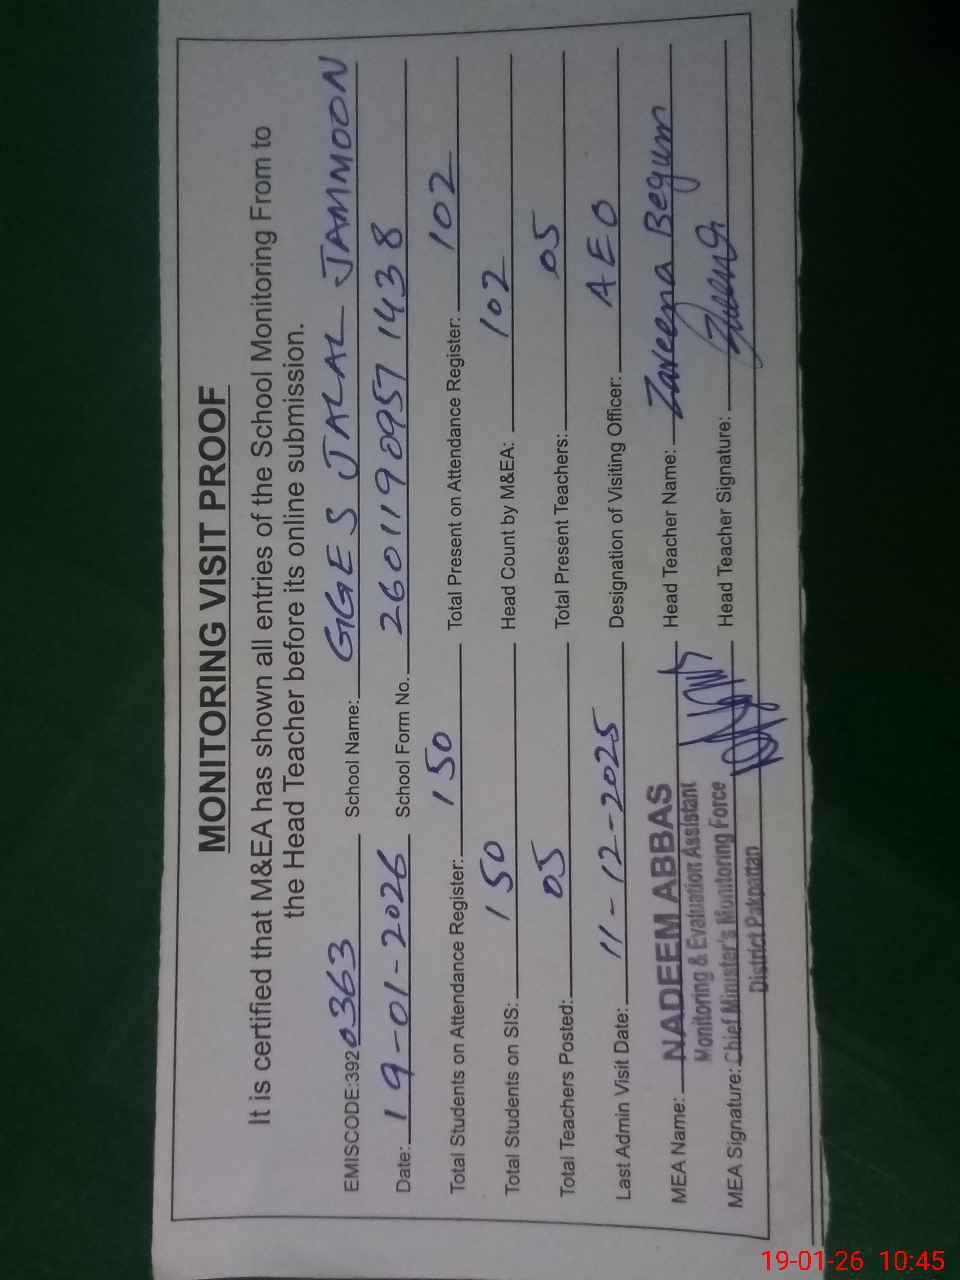 MONITORING VISIT PROOF
It is certified that M&EA has shown all entries of the School Monitoring From to
the Head Teacher before its online submission.
EMISCODE:3920363 School Name: GGES JALAL JAMMOON
Date: 19-01-2026 School Form No. 26011909571438
Total Students on Attendance Register: 150 Total Present on Attendance Register: 102
Total Students on SIS: 150 Head Count by M&EA: 102
Total Teachers Posted: 05 Total Present Teachers: 05
Last Admin Visit Date: 11-12-2025 Designation of Visiting Officer: AEO
MEA Name: NADEEM ABBAS Head Teacher Name: Zareena Begum
Monitoring & Evaluation Assistant
MEA Signature: Chief Minister's Monitoring Force Head Teacher Signature:
District Pakpattan
19-01-26 10:45